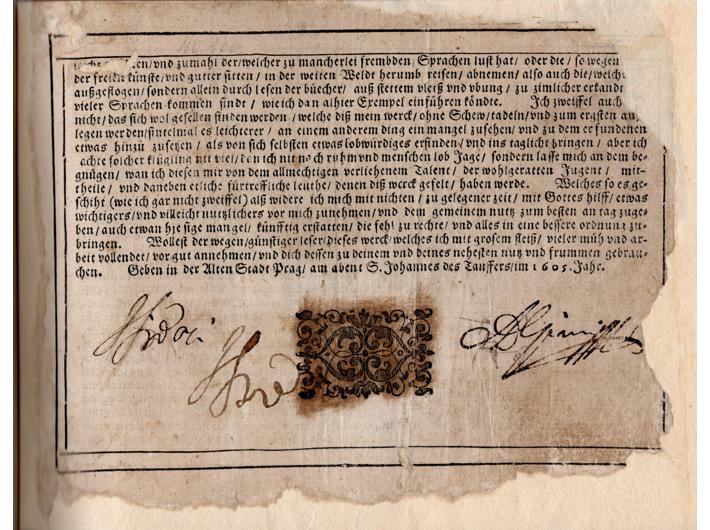 /vnd zumahl der/welcher zu mancherlei frembden Sprachen lust hat/ oder die/ so wegen
der freien künste/vnd gutter sitten / in der weiten Weldt herumb reisen/ abnemen/ also auch die/welche
außgeflogen/ sondern allein durch lesen der bücher/ auß stettem vleiß vnd vbung / zu zimlicher erkandt
vieler Sprachen kommen sindt / wie ich dan alhier Exempel einführen köndte. Ich zweiffel auch
nicht/das sich wol gesellen finden werden / welche diß mein werck/ ohne Schew/tadeln/vnd zum ergsten
legen werden/sintelmal es leichterer / an einem anderem ding ein mangel zusehen/ vnd zu dem erfundenen
etwas hinzu zusetzen / als von sich selbsten etwas lobwürdiges erfinden/ vnd ins taglicht bringen / aber ich
achte solcher klügling nit viel/den ich nit nach ruhm vnd menschen lob Jage/ sondern lasse mich an dem be-
gnügen/ wan ich diesen mir von dem allmechtigen verliehenem Talent/ der wohlgeratten Jugent / mit-
theile / vnd daneben etliche fürtreffliche leuthe/ denen diß werck gefelt/ haben werde. Welches so es ge-
schiht (wie ich gar nicht zweiffel) alß widere ich mich mit nichten / zu gelegener zeit/ mit Gottes hilff/ etwas
wichtigers/vnd villeicht nutzlichers vor mich zunehmen/ vnd dem gemeinem nutz zum besten an tag zuge-
ben/ auch etwan hie sige mangel/ künfftig erstatten/ die fehl zu rechte/ vnd alles in eine bessere ordnung zu-
bringen. Wollest der wegen/günstiger leser/dieses werck/welches ich mit grosem fleiß/ vieler müh vnd ar-
beit vollendet/ vor gut annehmen/ vnd dich dessen zu deinem vnd deines nehesten nutz vnd frummen gebrau-
chen. Geben in der Alten Stadt Prag/ am abent S. Johannes des Tauffers/im 1605. Jahr.